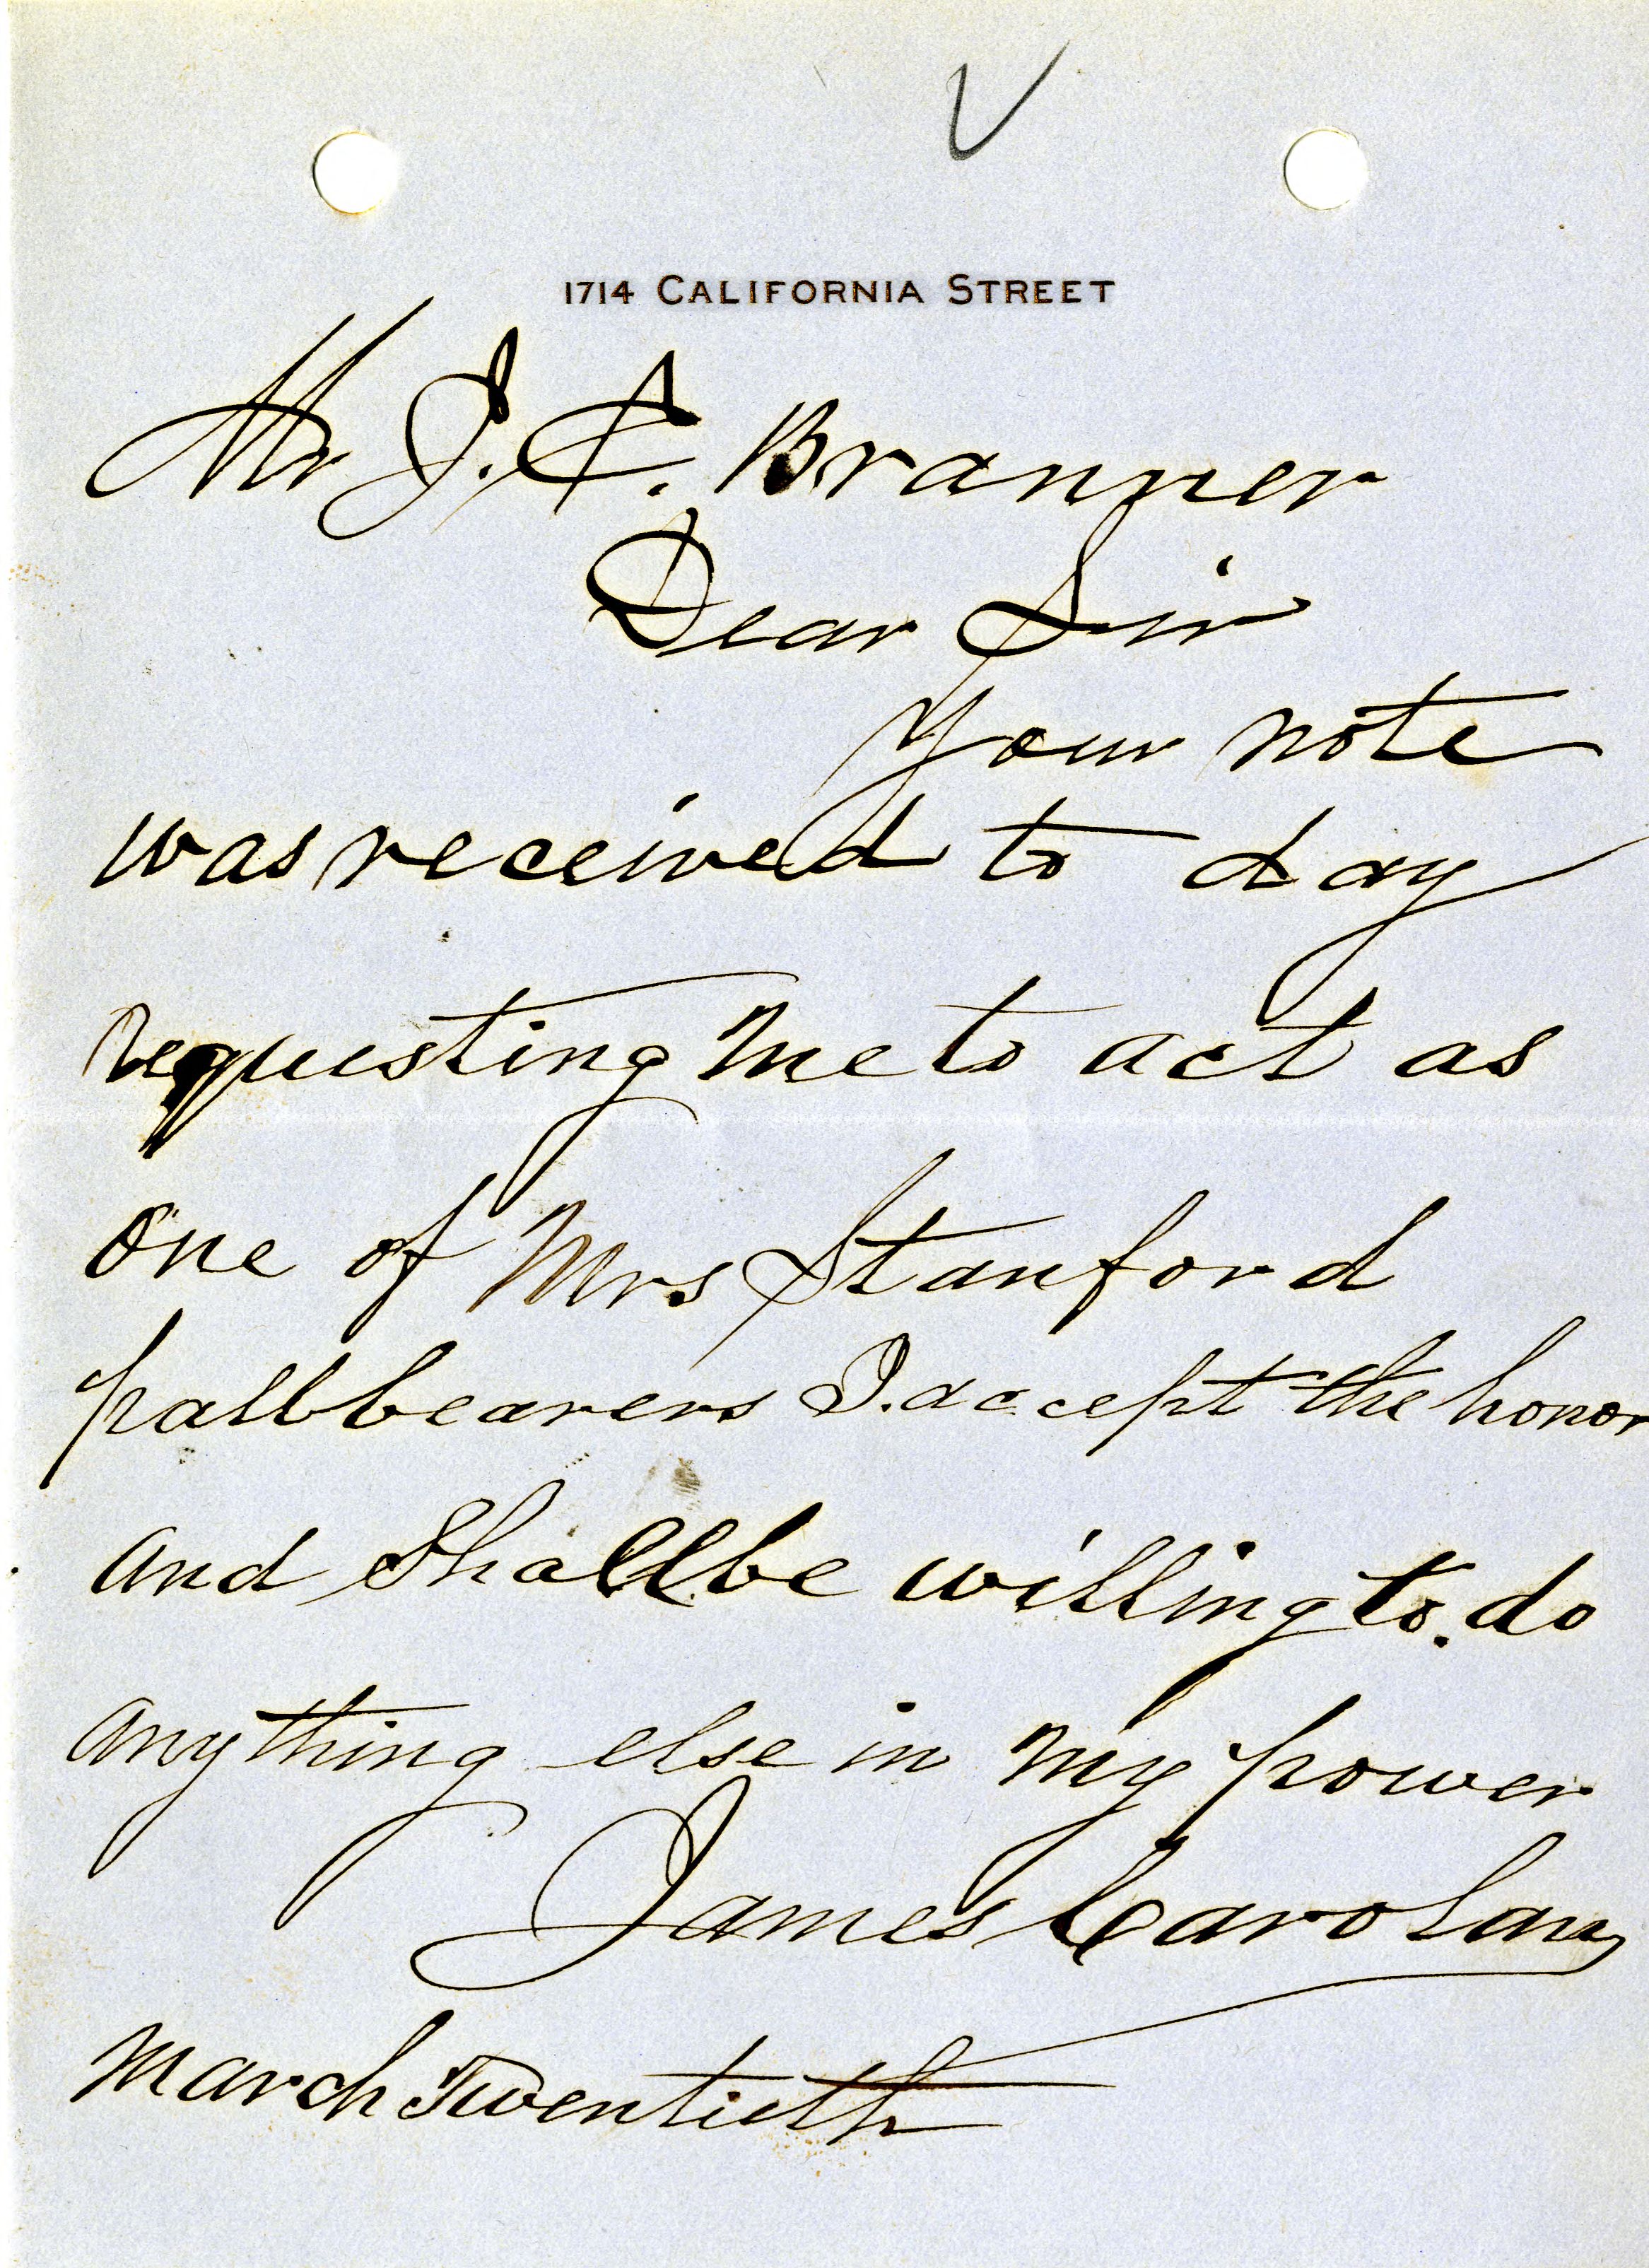 1714 CALIFORNIA STREET
Mr J. C. Branner
Dear Sir
Your note
was received to day
requesting me to act as
one of Mrs Stanford
pallbearers I. accept the honor
and shall be willing to. do
anything else in my power
James Carolan
March Twentieth